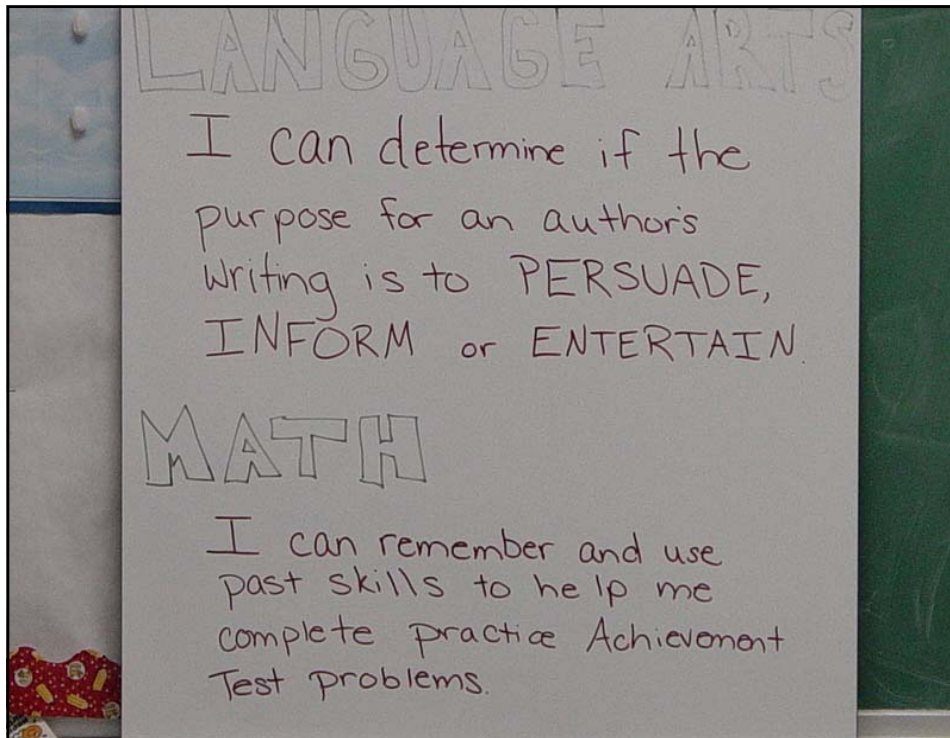 LANGUAGE ARTS
I can determine if the
purpose for an author's
writing is to PERSUADE,
INFORM or ENTERTAIN.
MATH
I can remember and use
past skills to help me
complete practice Achievement
Test problems.